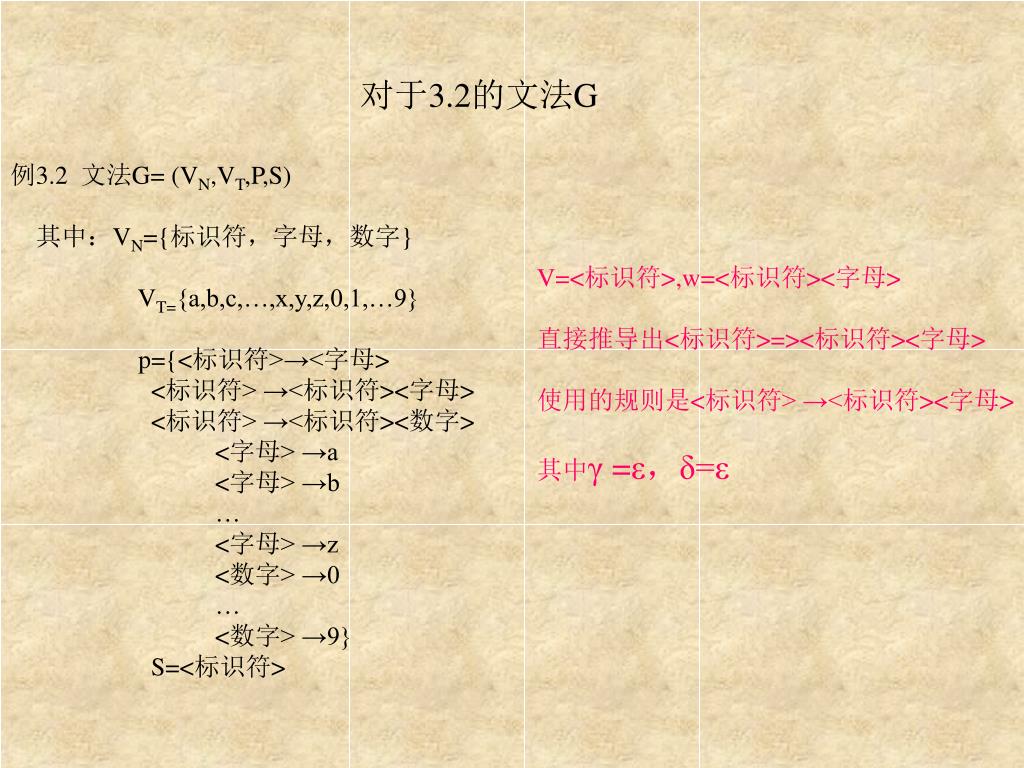 对于3.2的文法G
例3.2 文法G= (VN,VT,P,S)
其中：VN={标识符，字母，数字}
VT={a,b,c,…,x,y,z,0,1,…9}
p={<标识符>→<字母>
<标识符> →<标识符><字母>
<标识符> →<标识符><数字>
<字母> →a
<字母> →b
…
<字母> →z
<数字> →0
…
<数字> →9}
S=<标识符>
V=<标识符>,w=<标识符><字母>
直接推导出<标识符>=><标识符><字母>
使用的规则是<标识符> →<标识符><字母>
其中γ =ε，δ=ε